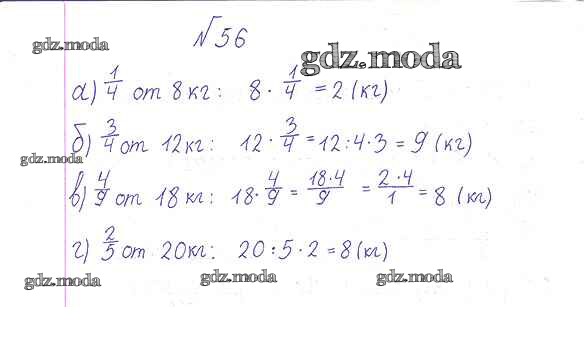 №56
gdz.moda
gdz.moda
а) 1/4 от 8 кг: 8 · 1/4 = 2 (кг)
б) 3/4 от 12 кг: 12 · 3/4 = 12 : 4 · 3 = 9 (кг)
gdz.moda
в) 4/9 от 18 кг: 18 · 4/9 = 18·4/9 = 2·4/1 = 8 (кг)
г) 2/5 от 20 кг: 20 : 5 · 2 = 8 (кг)
gdz.moda
gdz.moda
gdz.moda